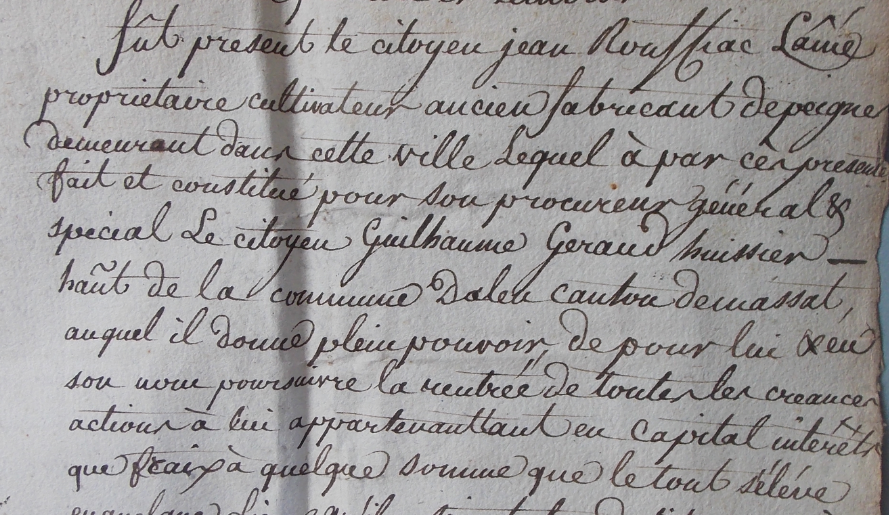 fût present le citoyen jean Roussiac Laîné
propriétaire cultivateur ancien fabricant depeigne
demeurant dans cette ville Lequel à par ces presente
fait et constitué pour son procureur général &
spécial Le citoyen Guilhaume Geraud huissier —
haut de la commune Daleu canton demassat,
auquel il donne plein pouvoir, de pour lui & en
son nom poursuivre la rentrée de toutes les creances
actions à lui appartenanttant en capital interêts
que fraix à quelque somme que le tout s'éléve